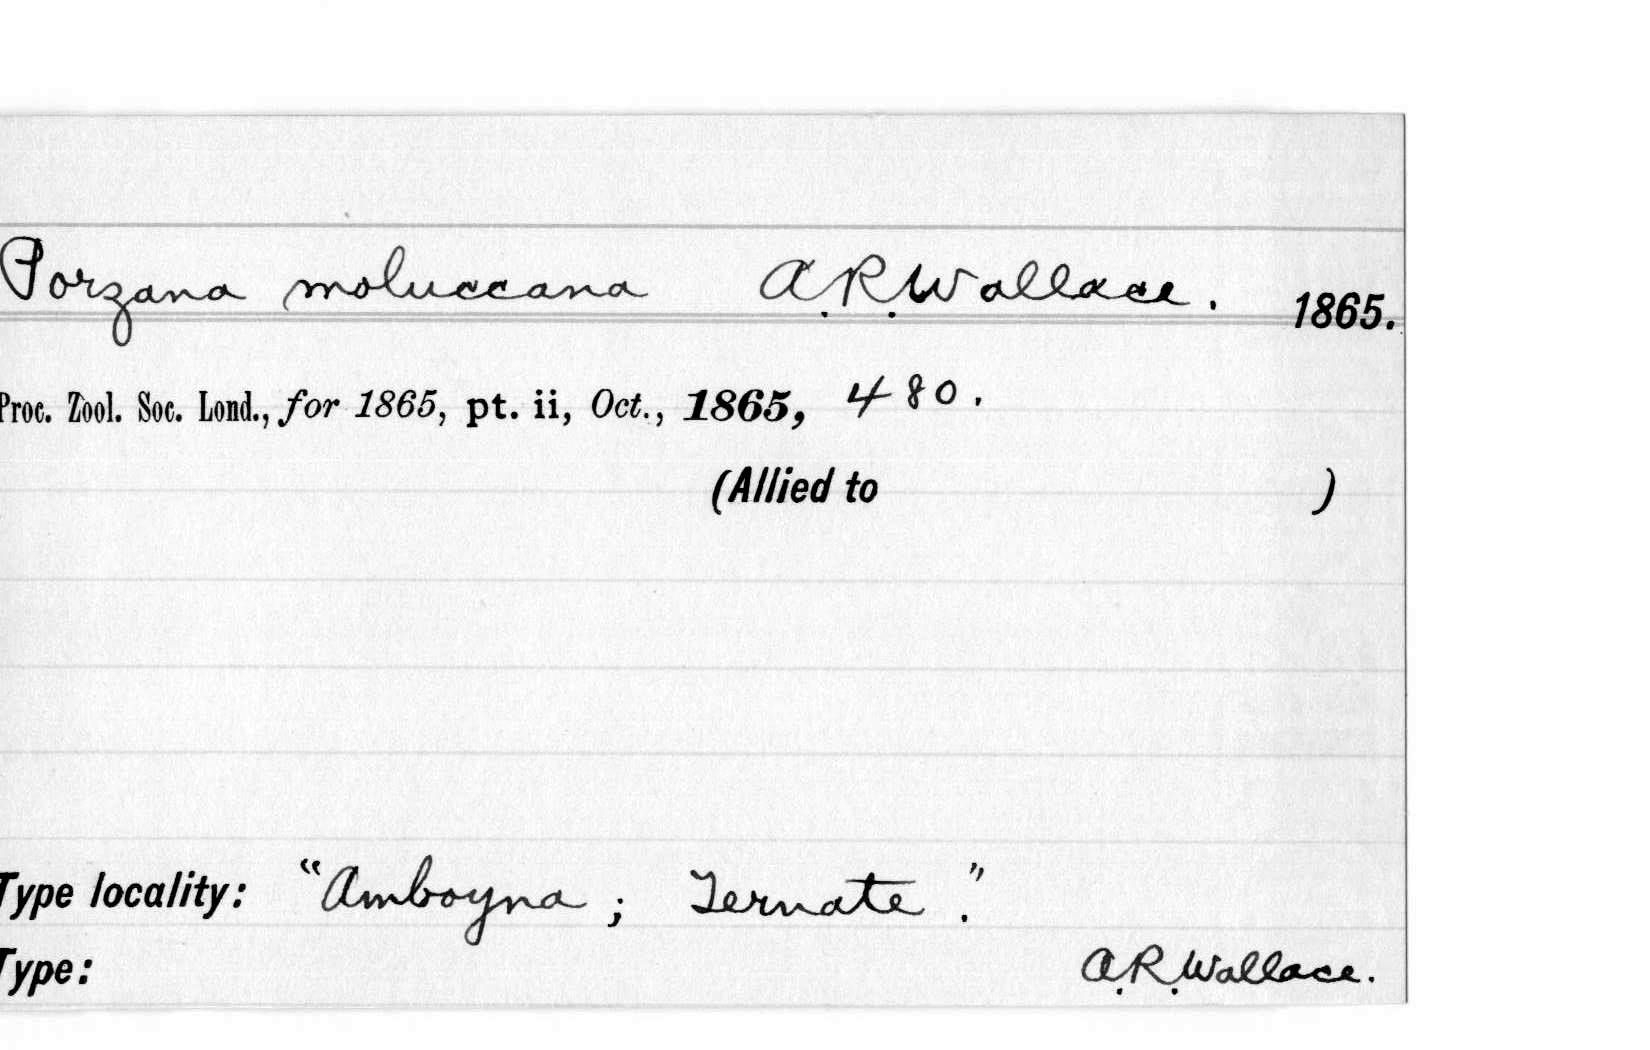 Porzana moluccana A.R.Wallace. 1865.
Proc. Zool. Soc. Lond., for 1865, pt. ii, Oct., 1865, 480.
(Allied to )
Type locality: "Amboyna; Ternate."
Type: A.R.Wallace.